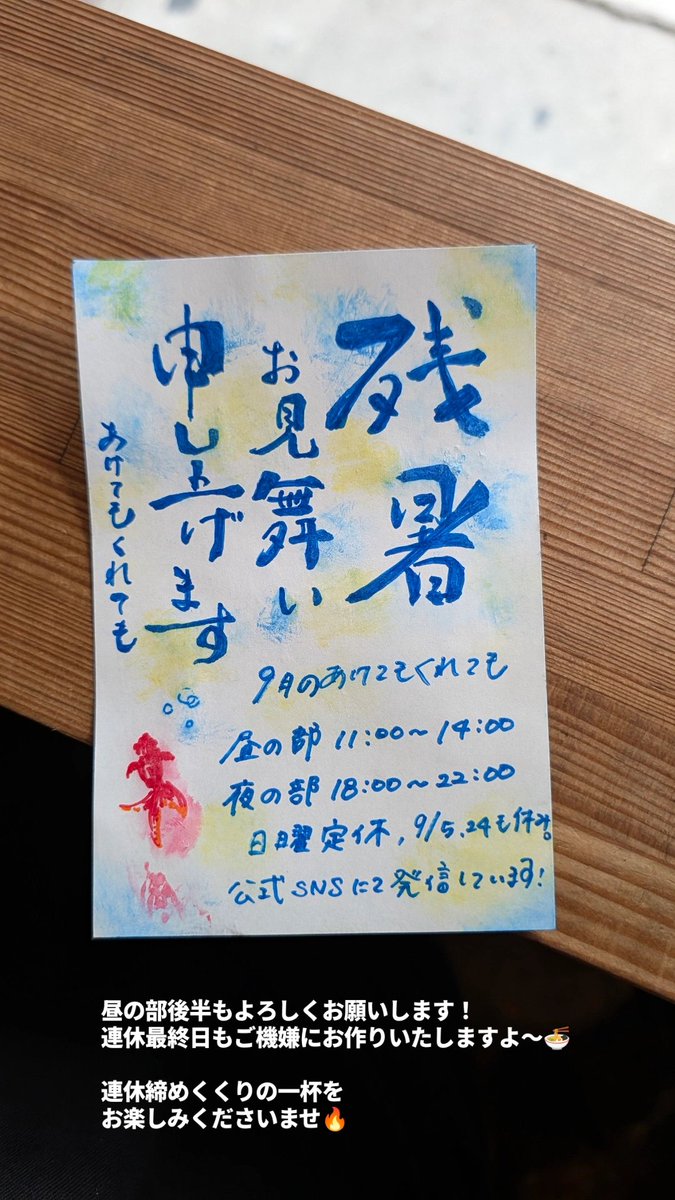 残暑
お見舞い
申し上げます
あけてもくれても
9月のあけてもくれても
昼の部 11:00〜14:00
夜の部 18:00〜22:00
日曜定休, 9/5.24も休み。
公式SNSにて発信しています!
昼の部後半もよろしくお願いします！
連休最終日もご機嫌にお作りいたしますよ〜🍜
連休締めくくりの一杯を
お楽しみくださいませ🔥